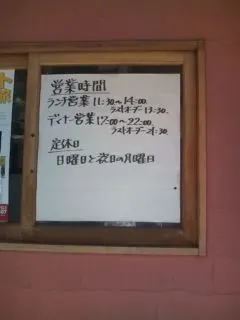 営業時間
ランチ営業 11:30〜14:00
ラストオーダー 13:30
ディナー営業 17:00〜22:00
ラストオーダー 21:30
定休日
日曜日と祝日の月曜日